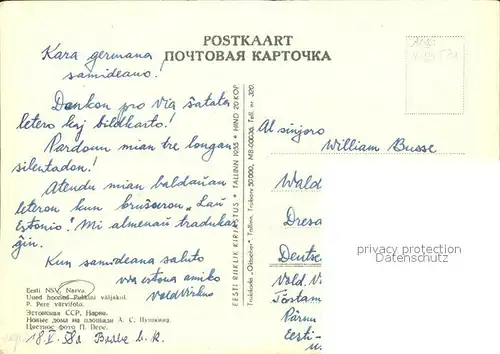 POSTKAART
ПОЧТОВАЯ КАРТОЧКА
Kara germana
samideano!
Dankon pro via ŝatata
letero kaj bildkarto!
Pardonu mian tre longan
silentadon!
Atendu mian baldaŭan
leteron kun broŝuron "Laŭ
Estonio". Mi almenaŭ tradukas
ĝin.
Kun samideana saluto
via estona amiko
Vald Virkus
Eesti NSV. Narva.
Uued hooned Puškini väljakul.
P. Pere värvifoto.
Эстонская ССР. Нарва.
Новые дома на площади А. С. Пушкина.
Цветное фото П. Пере.
EESTI RIIKLIK KIRJASTUS * TALLINN 1955 * HIND 20 KOP.
Trükikoda „Oktoober" Tallinn. Trükiarv 50 000. MB-00036. Tell. nr. 320.
Al sinjoro
William Busse
Wald
Dresd
Deutsc
Vald. V
Tõstam
Pärnu
Eesti-
privacy protection
Datenschutz